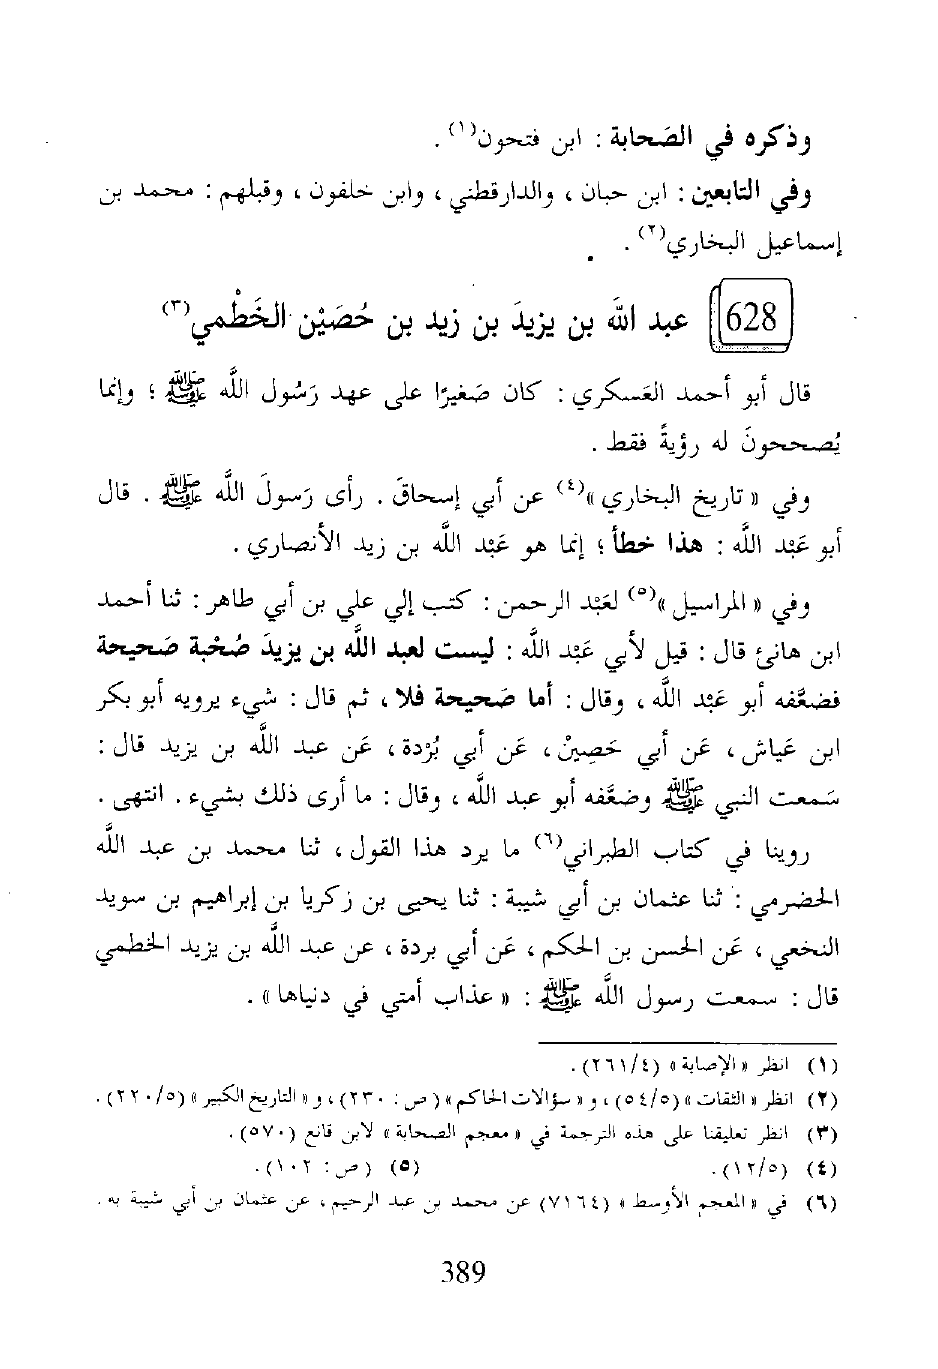 وذكره في الصَحابة : ابن فتحون(١) .
وفي التابعين : ابن حبان ، والدارقطني ، وابن خلفون ، وقبلهم : محمد بن
إسماعيل البخاري(٢) .
628 عبد الله بن يزيدَ بن زيد بن حُصَيْن الخَطْمي(٣)
قال أبو أحمد العَسكري : كان صَغيرًا على عهد رَسُول اللَّه ﷺ ؛ وإنما
يُصححونَ له رؤيةً فقط .
وفي « تاريخ البخاري »(٤) عن أبي إسحاقَ . رأى رَسولَ اللَّه ﷺ . قال
أبو عَبْد اللَّه : هذا خطأ ؛ إنما هو عَبْد اللَّه بن زيد الأنصاري .
وفي « المراسيل »(٥) لعَبْد الرحمن : كتب إلي علي بن أبي طاهر : ثنا أحمد
ابن هانئ قال : قيل لأبي عَبْد اللَّه : ليست لعبد اللَّه بن يزيدَ صُحْبة صَحيحة
فضعَّفه أبو عَبْد اللَّه ، وقال : أما صَحيحة فلا ، ثم قال : شيء يرويه أبو بكر
ابن عَياش ، عَن أبي حَصِينْ ، عَن أبي بُرْدة ، عَن عبد اللَّه بن يزيد قال :
سَمعت النبي ﷺ وضعَّفه أبو عبد اللَّه ، وقال : ما أرى ذلك بشيء . انتهى .
روينا في كتاب الطبراني(٦) ما يرد هذا القول ، ثنا محمد بن عبد اللَّه
الحضرمي : ثنا عثمان بن أبي شيبة : ثنا يحيى بن زكريا بن إبراهيم بن سويد
النخعي ، عَن الحسن بن الحكم ، عَن أبي بردة ، عن عبد اللَّه بن يزيد الخطمي
قال : سمعت رسول اللَّه ﷺ : « عذاب أمتي في دنياها » .
(١) انظر « الإصابة » (٢٦١/٤) .
(٢) انظر « الثقات » (٥٤/٥) ، و « سؤالات الحاكم » (ص : ٢٣٠) ، و « التاريخ الكبير » (٢٢٠/٥) .
(٣) انظر تعليقنا على هذه الترجمة في « معجم الصحابة » لابن قانع (٥٧٠) .
(٤) (١٢/٥) . (٥) (ص : ١٠٢) .
(٦) في « المعجم الأوسط » (٧١٦٤) عن محمد بن عبد الرحيم ، عن عثمان بن أبي شيبة به .
389